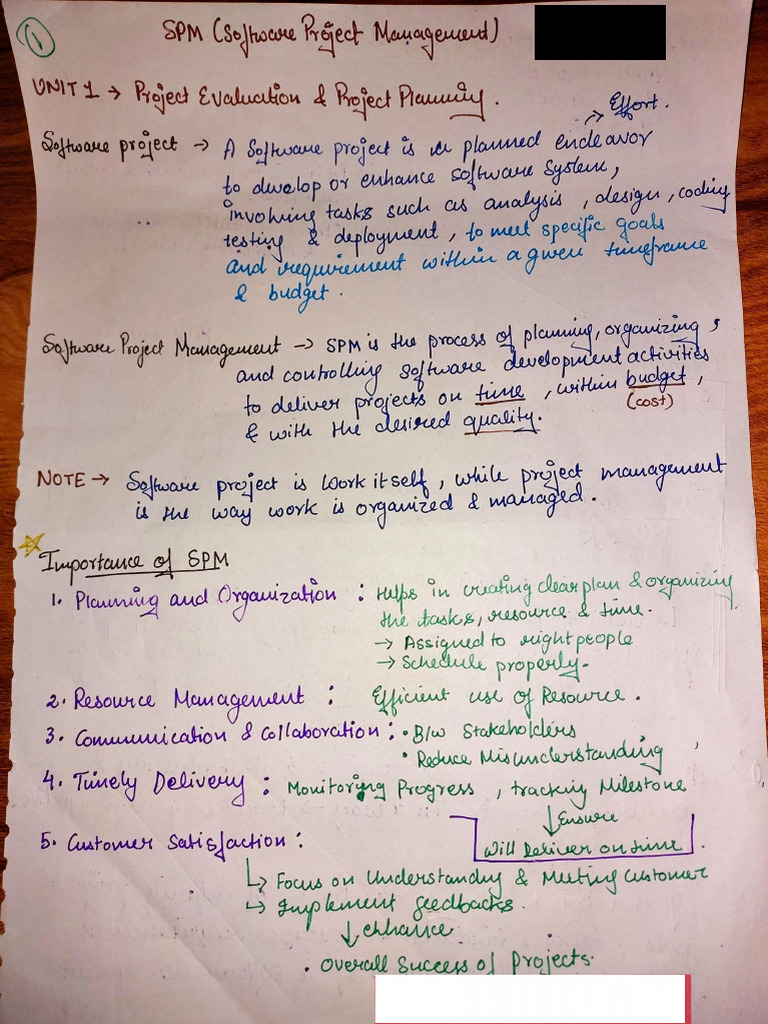 1
SPM (Software Project Management)
UNIT 1 → Project Evaluation & Project Planning.
→ Effort.
Software project → A Software project is a planned endeavor
to develop or enhance software system,
involving tasks such as analysis, design, coding
testing & deployment, to meet specific goals
and requirement within a given timeframe
& budget.
Software Project Management → SPM is the process of planning, organizing,
and controlling software development activities
to deliver projects on time, within budget,
(cost)
& with the desired quality.
NOTE → Software project is work itself, while project management
is the way work is organized & managed.
Importance of SPM
1. Planning and Organization : Helps in creating clear plan & organizing
the tasks, resource & time.
→ Assigned to right people
→ Schedule properly.
2. Resource Management : Efficient use of Resource.
3. Communication & Collaboration : • B/w Stakeholders
• Reduce Misunderstanding
4. Timely Delivery : Monitoring Progress, tracking Milestone
↓ Ensure
Will Deliver on time.
5. Customer Satisfaction :
↳ Focus on Understandng & Meeting Customer
↳ Implement feedbacks.
↓ enhance
• Overall Success of Projects.